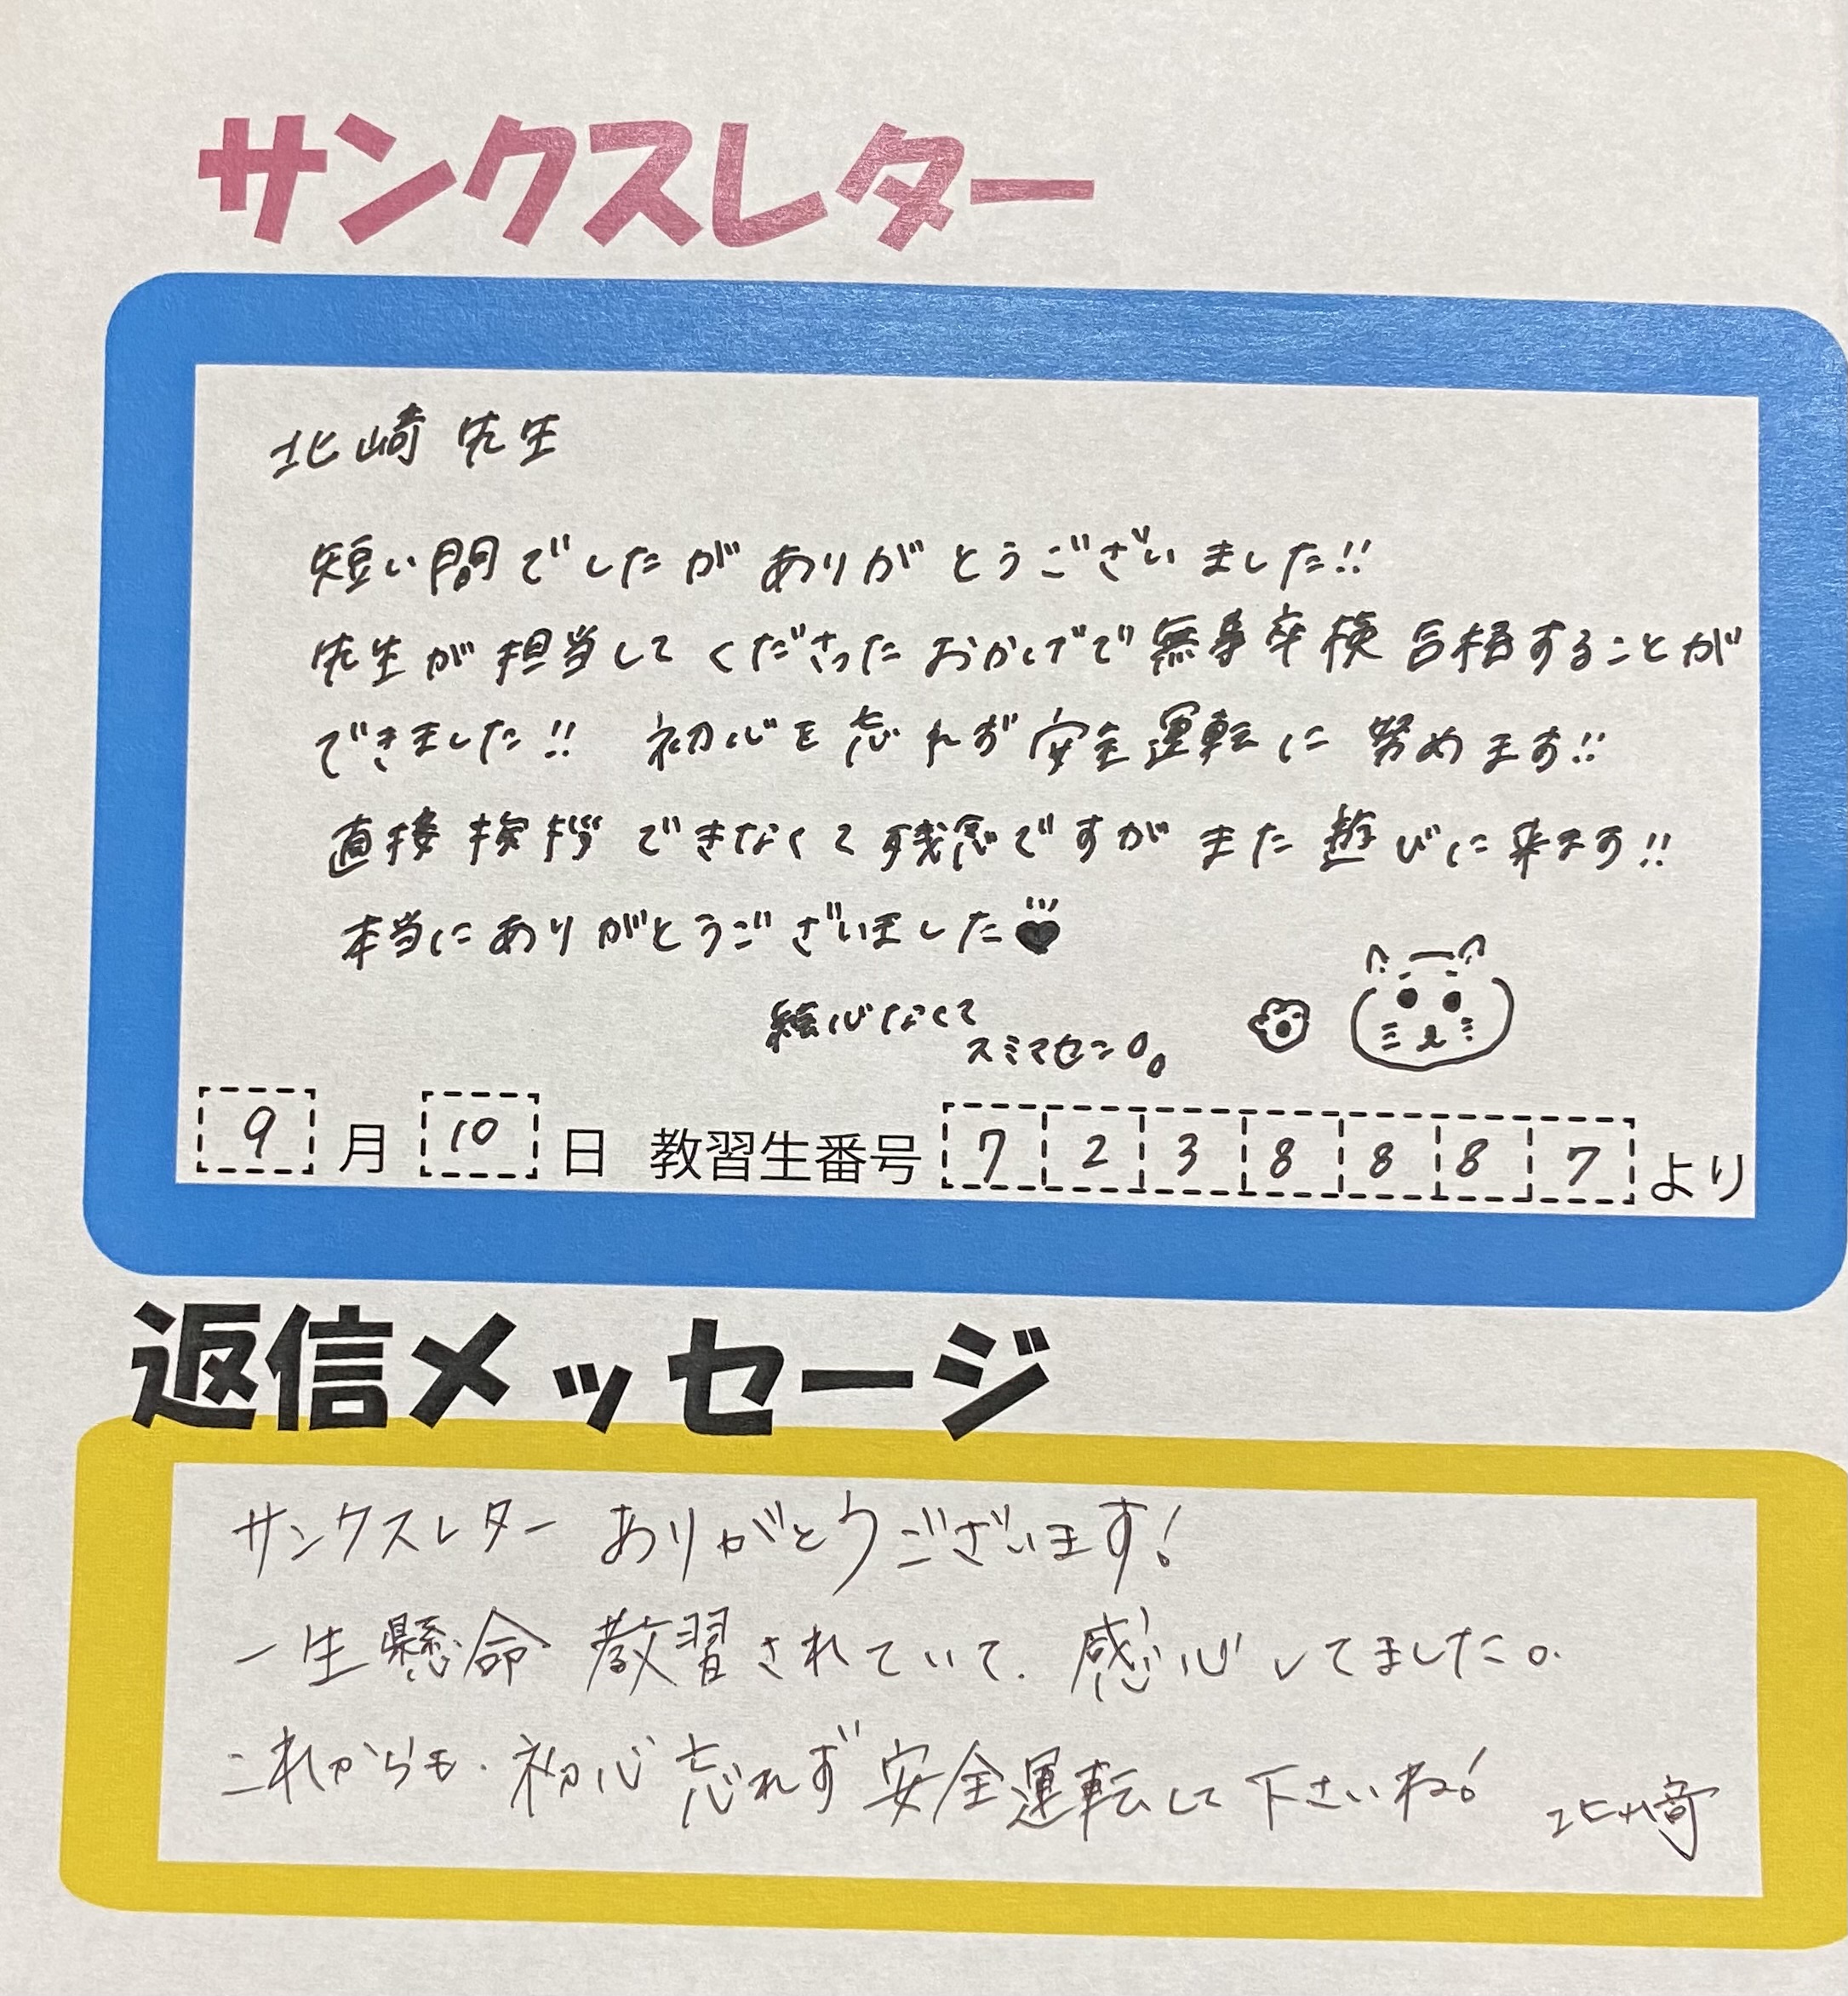 サンクスレター
北崎 先生
短い間でしたがありがとうございました!!
先生が担当してくださったおかげで無事卒検合格することが
できました!! 初心を忘れず安全運転に努めます!!
直接挨拶できなくて残念ですがまた遊びに来ます!!
本当にありがとうございました♥
絵心なくて
スミマセン
9月10日 教習生番号 7238887 より
返信メッセージ
サンクスレターありがとうございます!
一生懸命教習されていて、感心してました。
これからも、初心忘れず安全運転して下さいね! 北崎